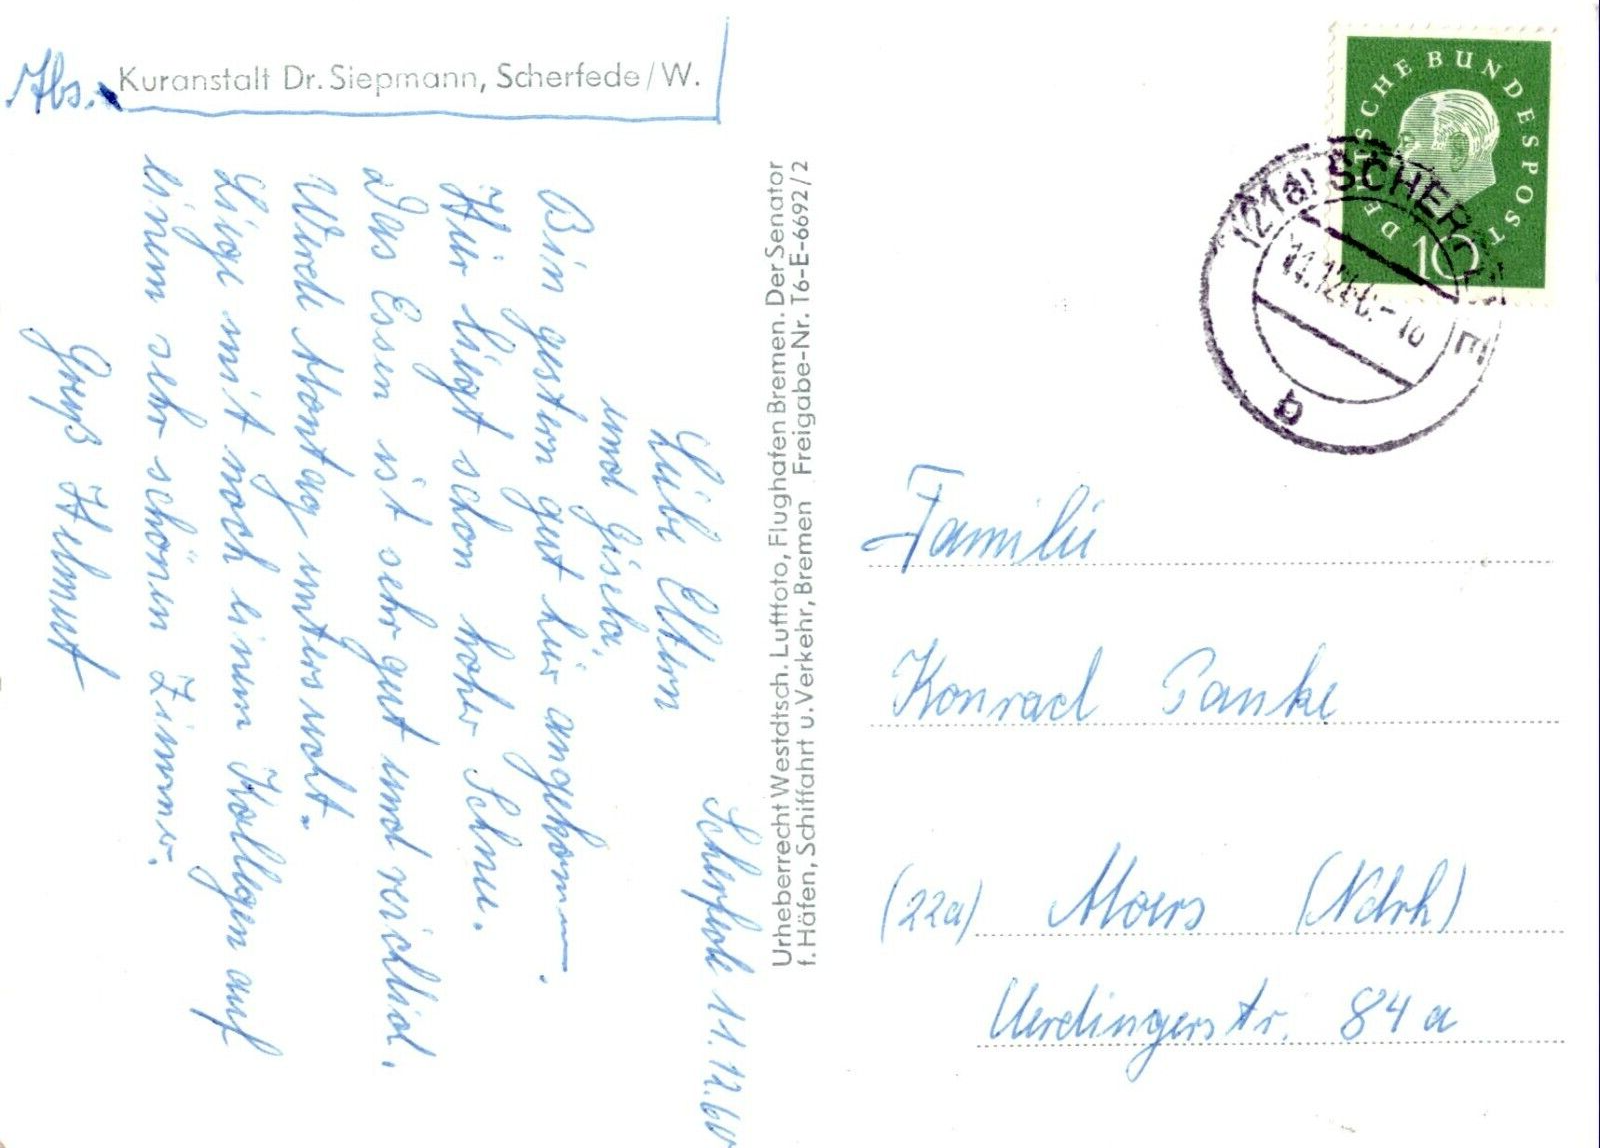 Abs. Kuranstalt Dr. Siepmann, Scherfede/W.
Scherfede 11.12.60
Liebe Eltern
und Gisela,
Bin gestern gut hier angekommen.
Hier liegt schon hoher Schnee.
Das Essen ist sehr gut und reichlich.
Werde Montag untersucht.
Liege mit noch einem Kollegen auf
einem sehr schönen Zimmer.
Gruß Helmut
Urheberrecht Westdtsch. Luftfoto, Flughafen Bremen. Der Senator
f. Häfen, Schiffahrt u. Verkehr, Bremen Freigabe-Nr. T6-E-6692/2
DEUTSCHE BUNDESPOST
10
(21a) SCHERFEDE
11.12.60.-18
Familie
Konrad Panke
(22a) Moers (Ndrh)
Uerdingerstr. 84 a